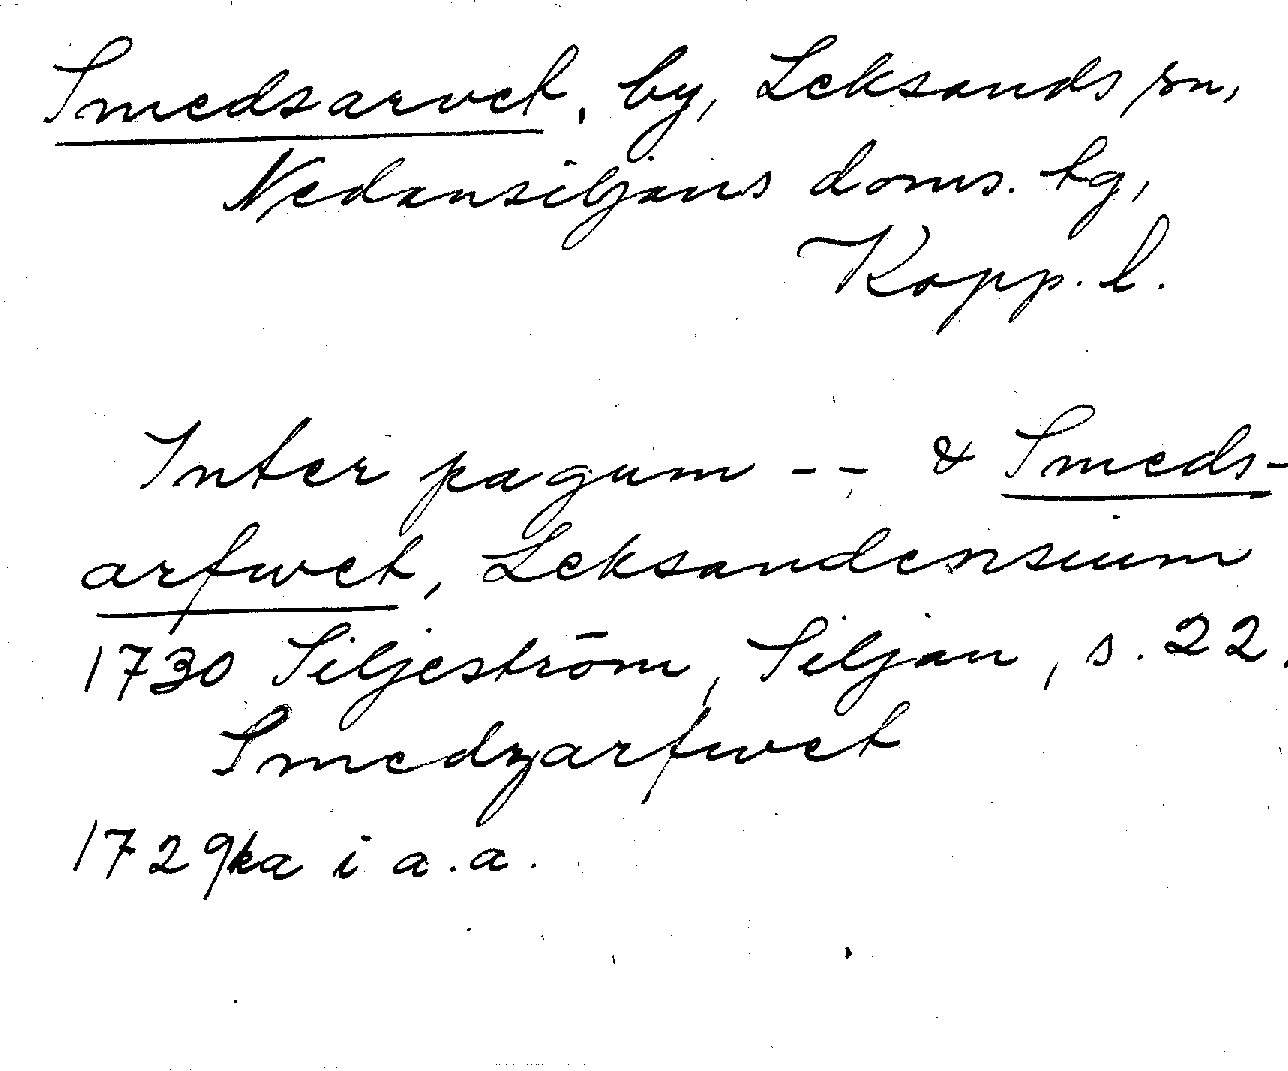 Smedsarvet, by, Leksands sn,
Nedansiljans doms. tg,
Kopp. l.
Inter pagum -- & Smeds-
arfwet, Leksandensium
1730 Siljeström, Siljan, s. 22.
Smedzarfwet
1729 ka i a.a.